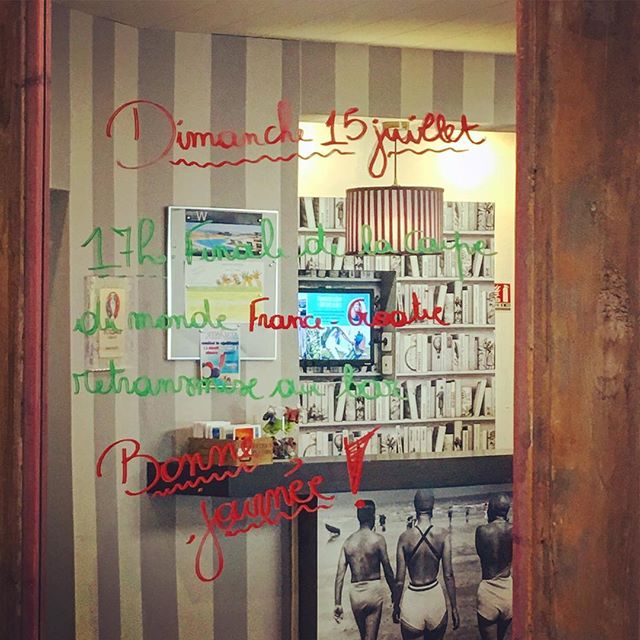 Dimanche 15 juillet
17h Finale de la Coupe
du monde France-Croatie
retransmise au bar
Bonne
journée !
W